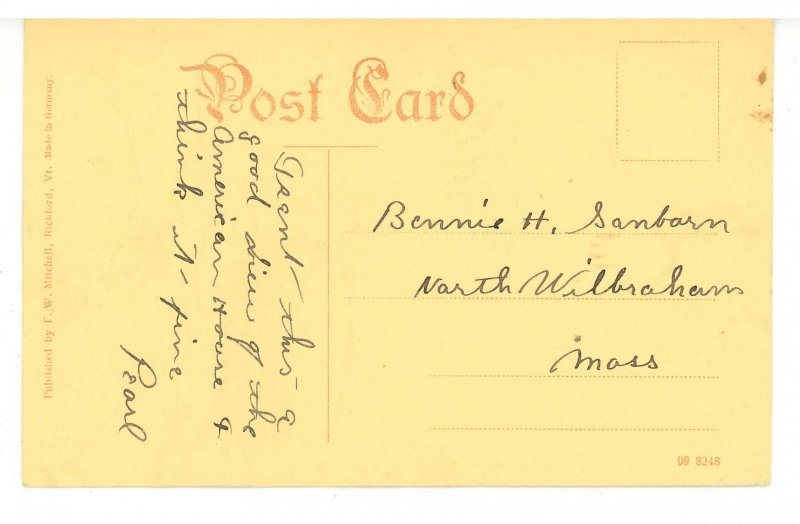 Post Card
Isent this a
good view of the
American House &
think it fine
Pearl
Bennie H. Sanborn
North Wilbraham
Mass
Published by F. W. Mitchell, Richford, Vt. Made in Germany.
99 8248